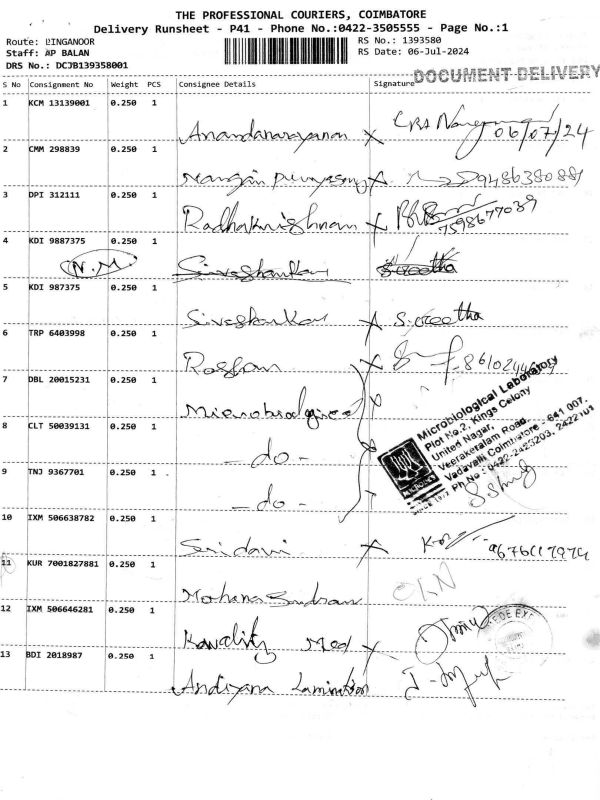 THE PROFESSIONAL COURIERS, COIMBATORE
Delivery Runsheet - P41 - Phone No.:0422-3505555 - Page No.:1
Route: LINGANOOR RS No.: 1393580
Staff: AP BALAN RS Date: 06-Jul-2024
DRS No.: DCJB139358001
DOCUMENT DELIVERY
S No Consignment No Weight PCS Consignee Details Signature
1 KCM 13139001 0.250 1
Anandanarayanan X 06/07/24
2 CMM 298839 0.250 1
X 9486380881
3 DPI 312111 0.250 1
Radhakrishnan X 7598677039
4 KDI 9887375 0.250 1
N.M Sivashankar Sreetha
5 KDI 987375 0.250 1
Sivashankar X Sreetha
6 TRP 6403998 0.250 1
Roshan X
7 DBL 20015231 0.250 1
Microbiological
8 CLT 50039131 0.250 1
- do -
9 TNJ 9367701 0.250 1
- do -
Microbiological Laboratory
Plot No.2, Kings Colony
United Nagar,
Veerakeralam Road,
Vadavalli Coimbatore - 641 007.
Ph No : 0422-2423203, 2422101
10 IXM 506638782 0.250 1
Sridavi X
11 KUR 7001827881 0.250 1
Mohana Sundram
12 IXM 506646281 0.250 1
Kavality Med X
13 BDI 2018987 0.250 1
Andiyana Lamination